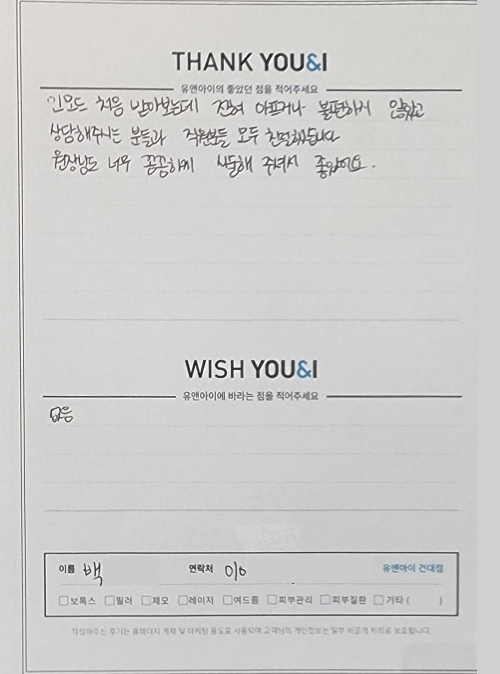 THANK YOU&I
유앤아이의 좋았던 점을 적어주세요
인모드 처음 받아보는데 전혀 아프거나 불편하지 않았고
상담해주시는 분들과 직원분들 모두 친절하십니다
원장님도 너무 꼼꼼하게 시술해 주셔서 좋았어요.
WISH YOU&I
유앤아이에 바라는 점을 적어주세요
없음
이름 백 연락처 010 유앤아이 건대점
보톡스 필러 제모 레이저 여드름 피부관리 피부질환 기타 ( )
작성해주신 후기는 홈페이지 게재 및 마케팅 용도로 사용되며 고객님의 개인정보는 일부 비공개 처리로 보호됩니다.